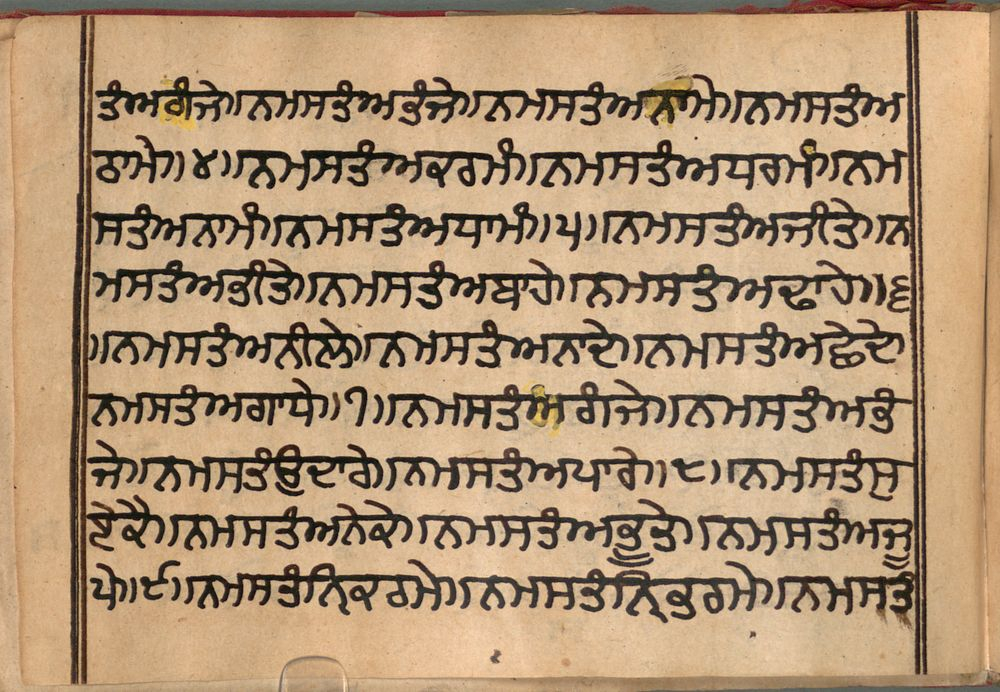 ਤੰਅਗੰਜੇ॥ਨਮਸਤੰਅਭੰਜੇ॥ਨਮਸਤੰਅਨਾਮੇ॥ਨਮਸਤੰਅ
ਠਾਮੇ॥੪॥ਨਮਸਤੰਅਕਰਮੰ॥ਨਮਸਤੰਅਧਰਮੰ॥ਨਮ
ਸਤੰਅਨਾਮੰ॥ਨਮਸਤੰਅਧਾਮੰ॥੫॥ਨਮਸਤੰਅਜੀਤੇ॥ਨ
ਮਸਤੰਅਭੀਤੇ॥ਨਮਸਤੰਅਬਾਹੇ॥ਨਮਸਤੰਅਢਾਹੇ॥੬
॥ਨਮਸਤੰਅਨੀਲੇ॥ਨਮਸਤੰਅਨਾਦੇ॥ਨਮਸਤੰਅਛੇਦੇ
ਨਮਸਤੰਅਗਾਧੇ॥੭॥ਨਮਸਤੰਅਗੰਜੇ॥ਨਮਸਤੰਅਭੰ
ਜੇ॥ਨਮਸਤੰਉਦਾਰੇ॥ਨਮਸਤੰਅਪਾਰੇ॥੮॥ਨਮਸਤੰਸੁ
ਏਕੈ॥ਨਮਸਤੰਅਨੇਕੇ॥ਨਮਸਤੰਅਭੂਤੇ॥ਨਮਸਤੰਅਜੂ
ਪੇ॥੯॥ਨਮਸਤੰਨ੍ਰਿਕਰਮੇ॥ਨਮਸਤੰਨ੍ਰਿਭਰਮੇ॥ਨਮਸਤੰ